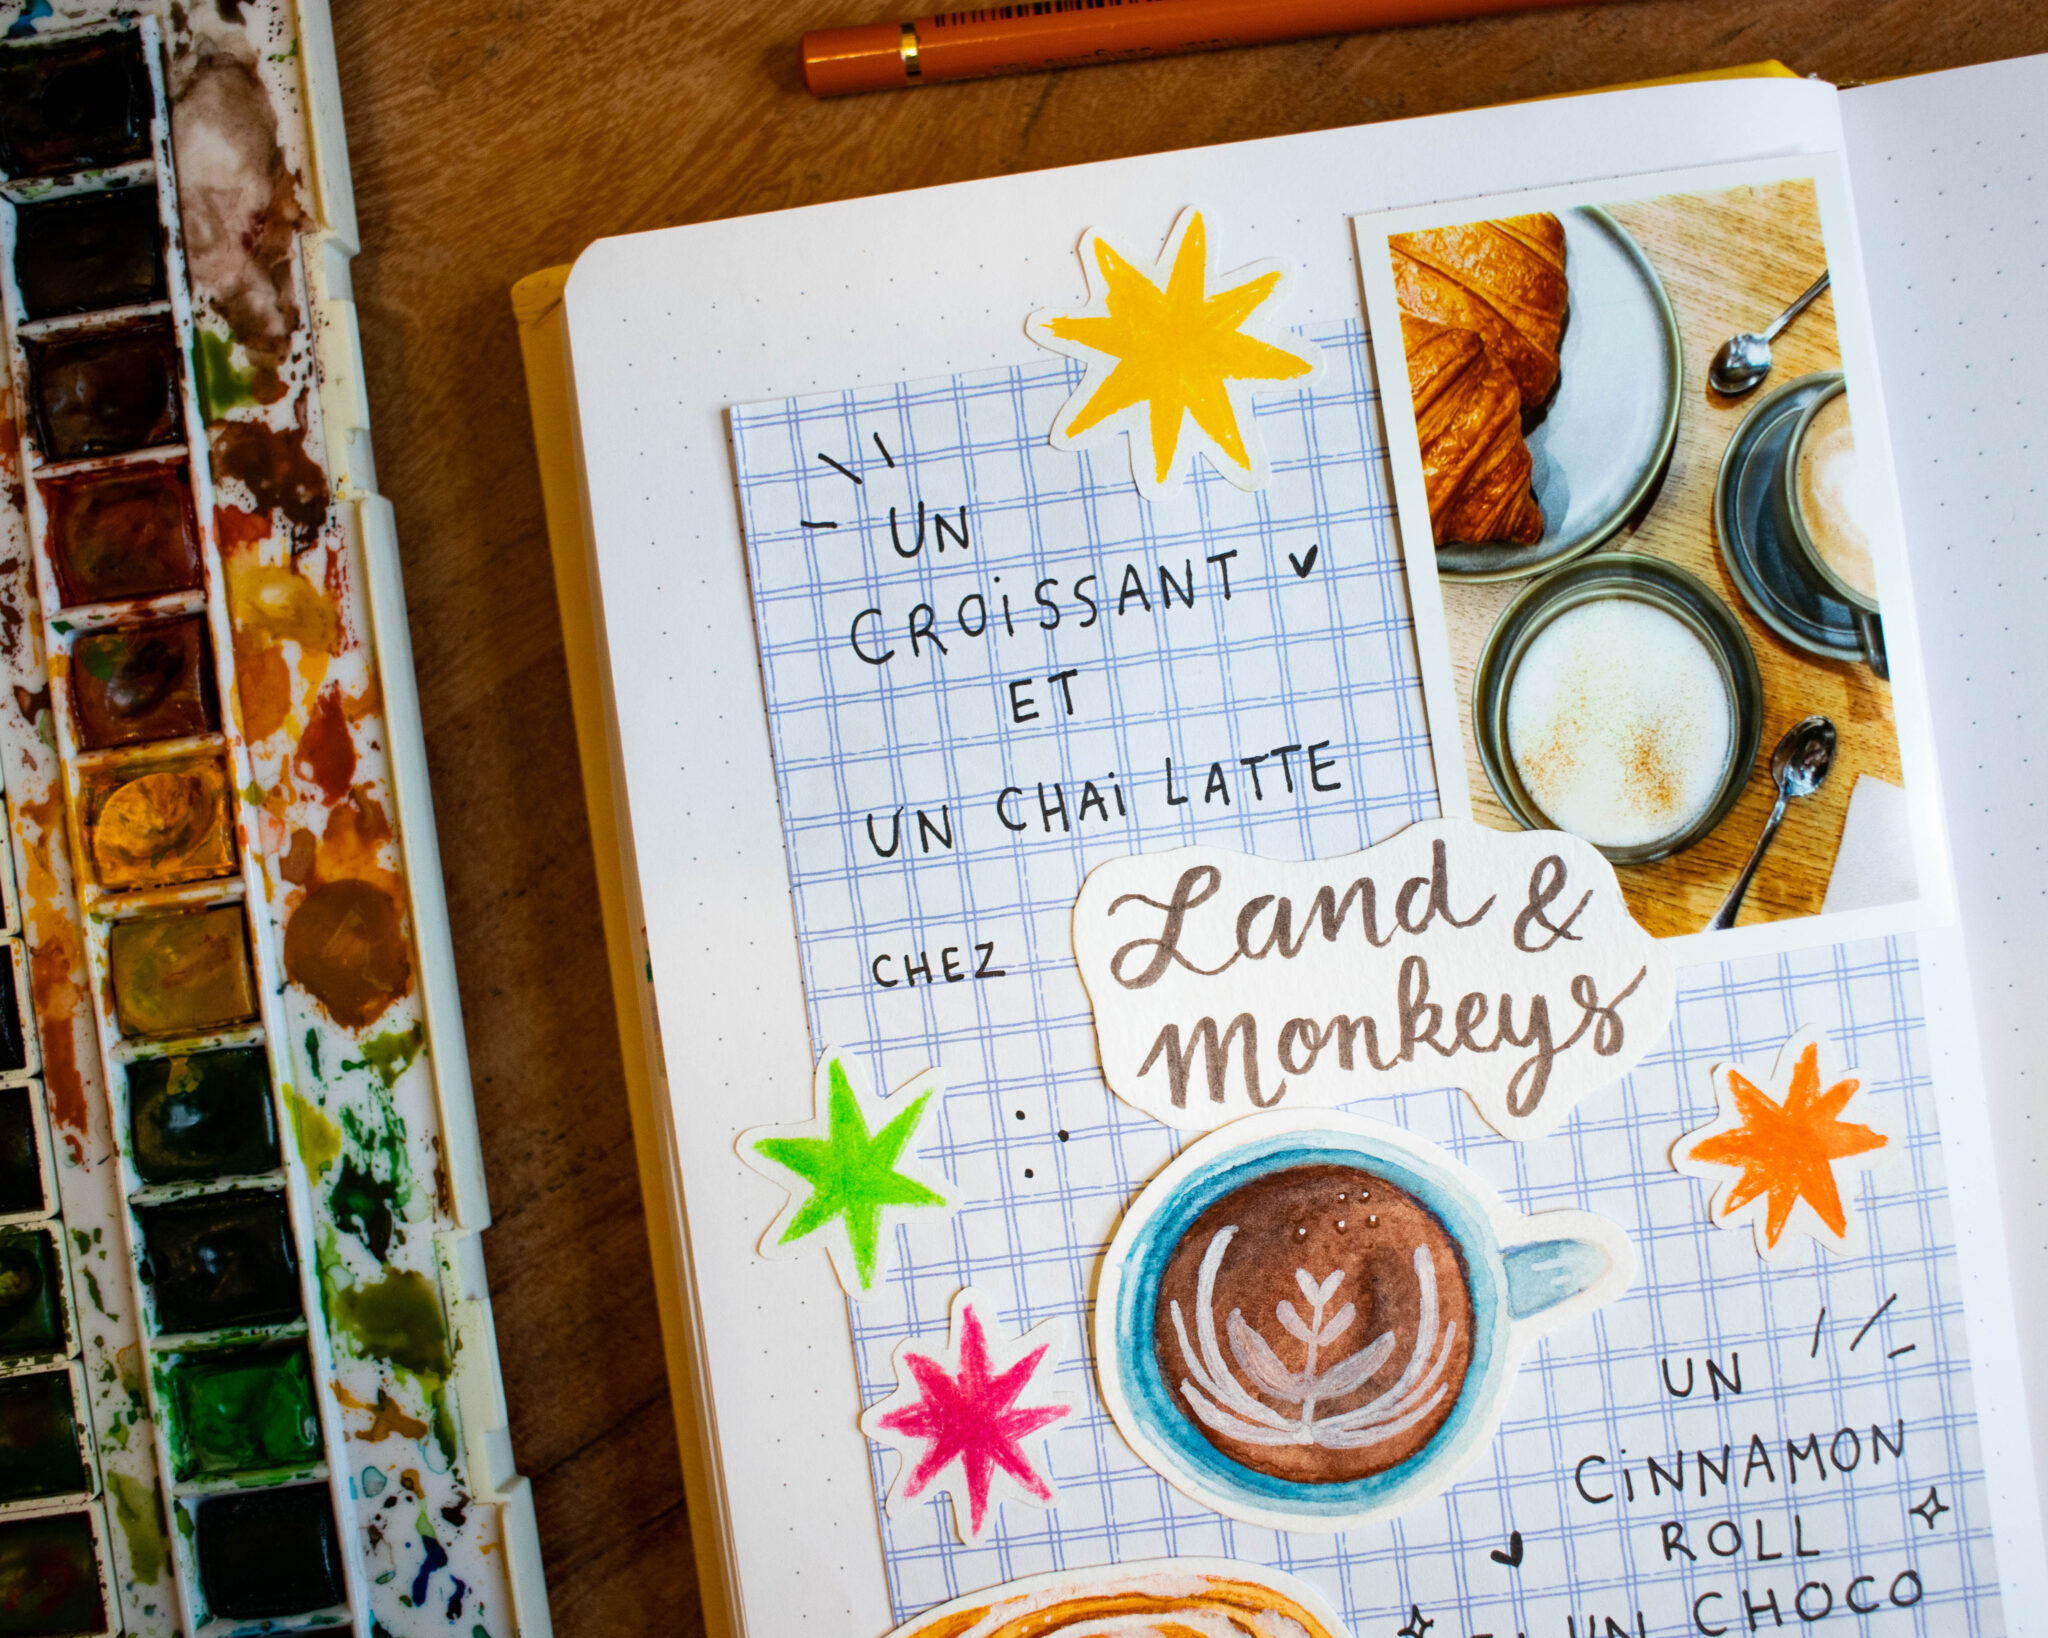 UN
CROiSSANT
ET
UN CHAi LATTE
CHEZ
Land &
Monkeys
UN
CiNNAMON
ROLL
UN CHOCO